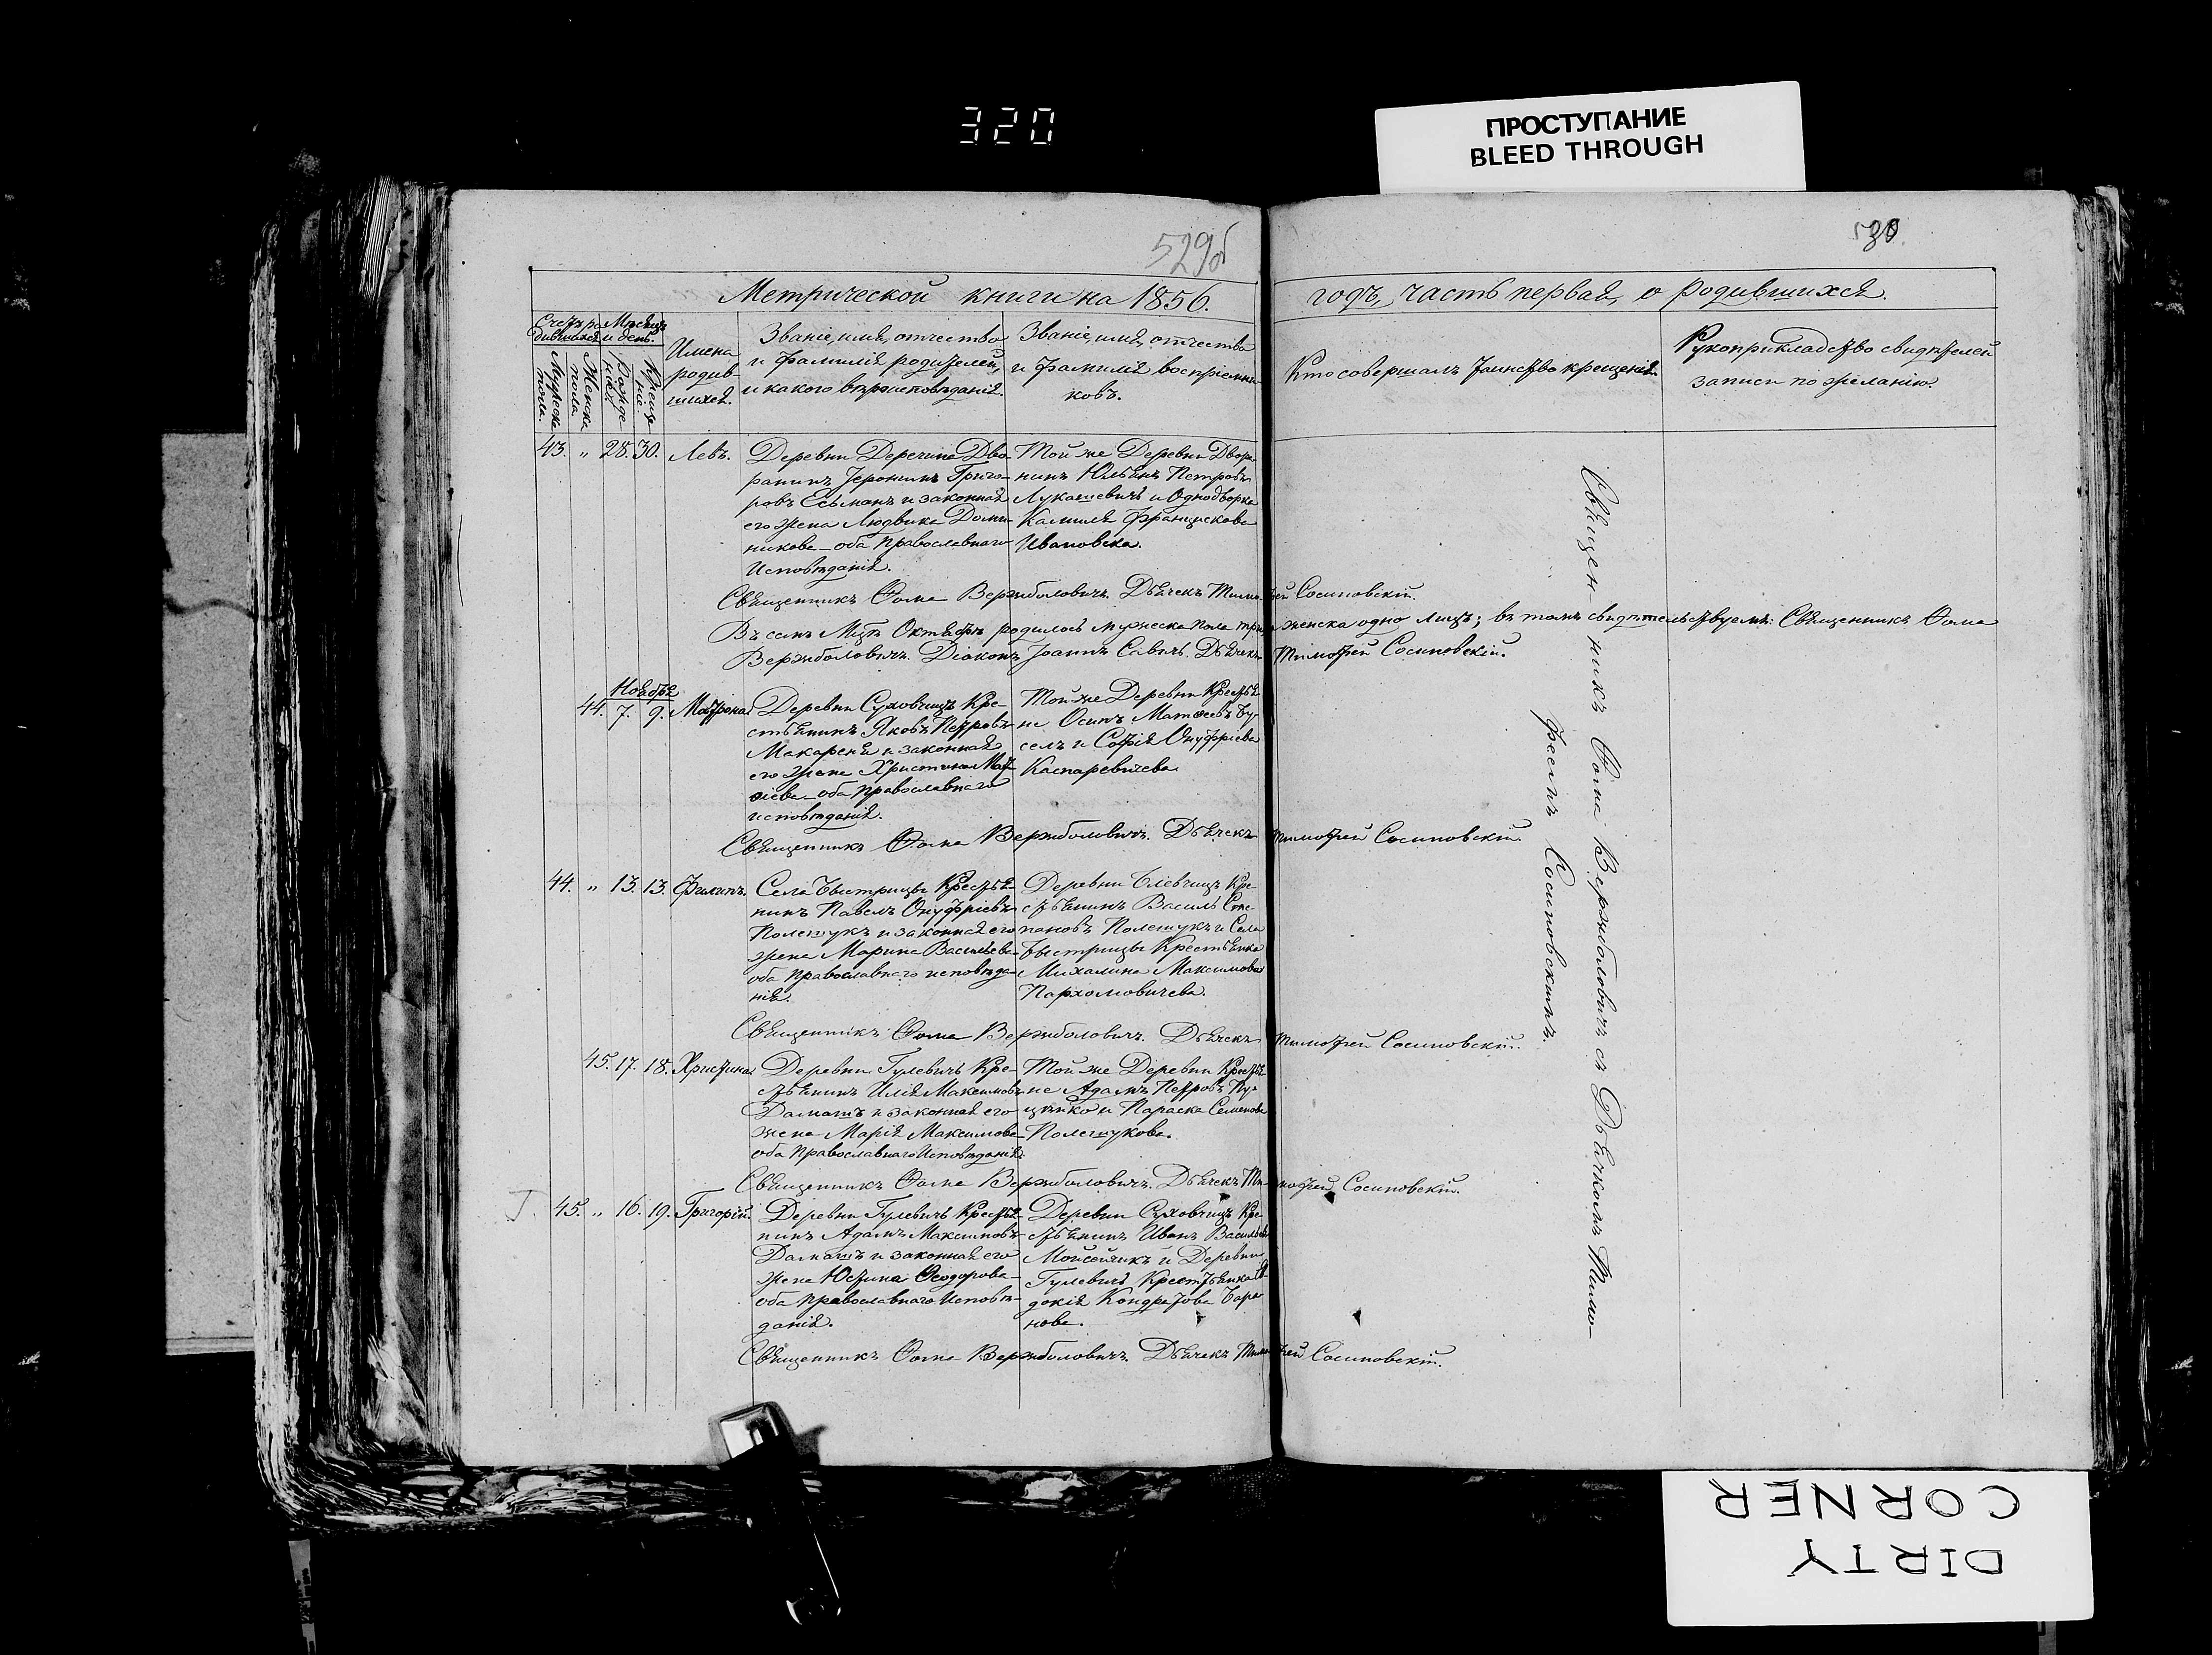 320
ПРОСТУПАНИЕ
BLEED THROUGH
529об
530
Метрической книги на 1856. годъ, часть первая, о родившихся.
Счетъ родившихся
Мѣсяцъ и день.
Мужеска пола.
Женска пола.
Рожденіе.
Крещеніе.
Имена родившихся.
Званіе, имя, отчество
и фамилія родителей,
и какого вѣроисповѣданія.
Званіе, имя, отчество
и фамилія воспріемни-
ковъ.
Кто совершалъ таинство крещенія.
Рукоприкладство свидѣтелей
записи по желанію.
43. " 28. 30. Левъ.
Деревни Деречина Дво-
рянинъ Іеронимъ Григо-
ровъ Есьманъ и законная
его жена Людвика Доми-
никова - оба православнаго
Исповѣданія.
Той же Деревни Дворя-
нинъ Юльянъ Петровъ
Лукашевичъ и Однодворка
Камиля Францискова
Ивановска.
Священникъ Ѳома Вержболовичъ. Дьячекъ Тимофей Сосиновскій.
Въ семъ Мцѣ Октябрѣ родилось мужеска пола три, женска одно лицъ; въ томъ свидѣтельствуемъ: Священникъ Ѳома
Вержболовичъ. Діаконъ Іоаннъ Савичъ. Дьячекъ Тимофей Сосиновскій.
Ноября
44. 7. 9. Матрона.
Деревни Суховчицъ Кре-
стьянинъ Яковъ Петровъ
Макареня и законная
его жена Христина Мат-
ѳіева - оба православнаго
исповѣданія.
Той же Деревни Крестья-
не Осипъ Матѳеевъ Бу-
селъ и Софія Онуфріева
Каспаревичева
Священникъ Ѳома Вержболовичъ. Дьячекъ Тимофей Сосиновскій.
44. " 13. 13. Филипъ.
Села Быстрицы Крестья-
нинъ Павелъ Онуфріевъ
Полешукъ и законная его
жена Марина Васильева-
оба православнаго исповѣда-
нія.
Деревни Блевчицъ Кре-
стьянинъ Василь Сте-
пановъ Полешукъ и Села
Быстрицы Крестьянка
Михалина Максимова
Пархомовичева.
Священникъ Ѳома Вержболовичъ. Дьячекъ Тимофей Сосиновскій.
45. 17. 18. Христина
Деревни Гулевичъ Кре-
стьянинъ Илія Максимовъ
Даматъ и законная его
жена Марія Максимова-
оба Православнаго Исповѣданія.
Той же Деревни Крестья-
не Адамъ Петровъ Ку-
цѣйко и Параска Семенова
Полешукова.
Священникъ Ѳома Вержболовичъ. Дьячекъ Тимофей Сосиновскій.
45. " 16. 19. Григорій.
Деревни Гулевичъ Крестья-
нинъ Адамъ Максимовъ
Даматъ и законная его
жена Юстина Ѳеодорова-
оба православнаго Исповѣ-
данія.
Деревни Суховчицъ Кре-
стьянинъ Иванъ Васильевъ
Мойсейчикъ и Деревни
Гулевичъ Крестьянка Ев-
докія Кондратова Бара-
нова.
Священникъ Ѳома Вержболовичъ. Дьячекъ Тимофей Сосиновскій.
Священникъ Ѳома Вержболовичъ съ Дьячкомъ Тимо-
феемъ Сосиновскимъ.
DIRTY
CORNER